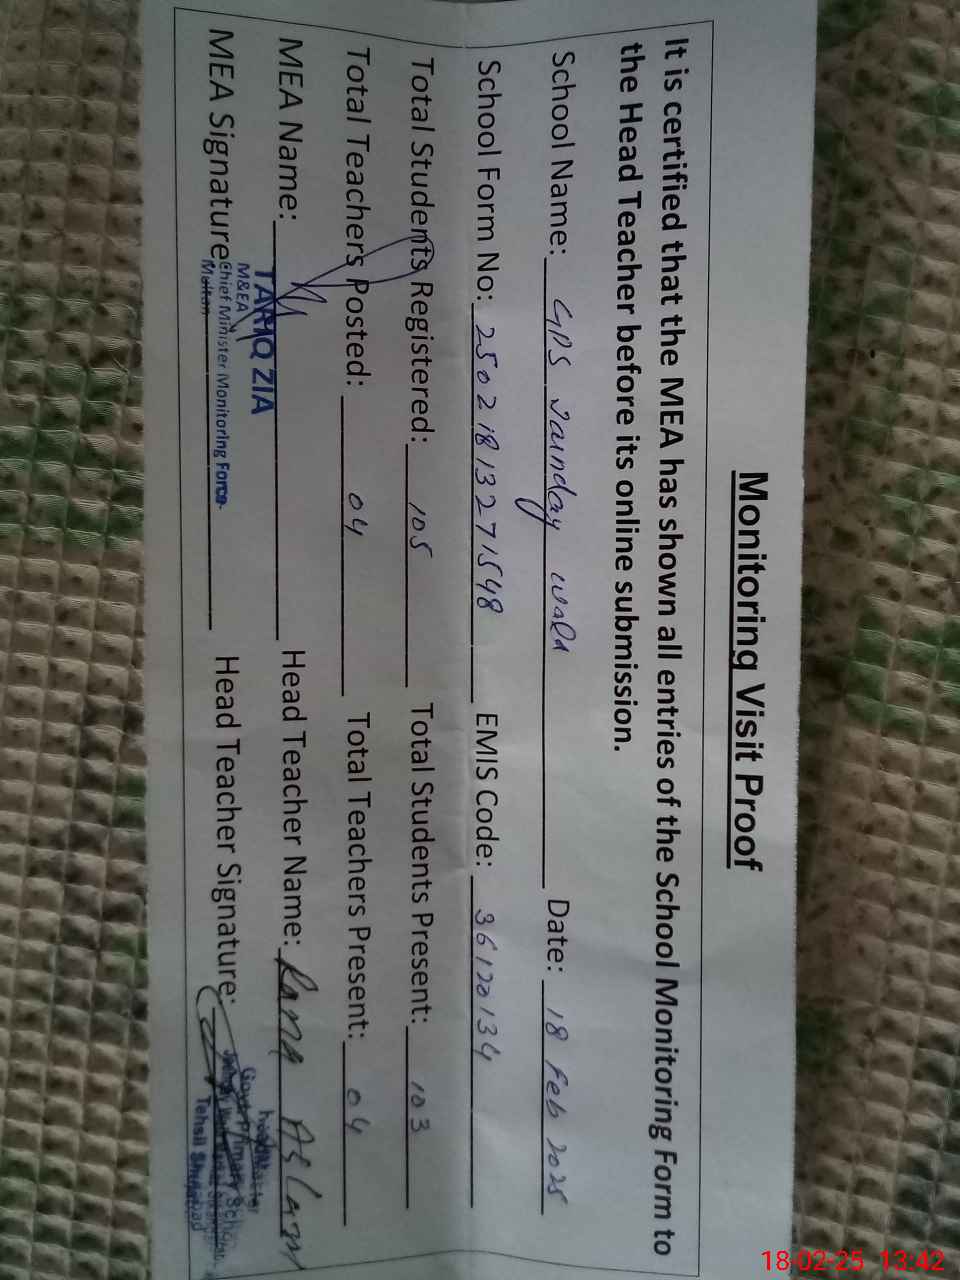 Monitoring Visit Proof
It is certified that the MEA has shown all entries of the School Monitoring Form to
the Head Teacher before its online submission.
School Name: GPS Jainday wala Date: 18 Feb 2025
School Form No: 25021813271548 EMIS Code: 36120134
Total Students Registered: 105 Total Students Present: 103
Total Teachers Posted: 04 Total Teachers Present: 04
MEA Name: Head Teacher Name: Rana Aslam
TARIQ ZIA
M&EA
MEA Signature Chief Minister Monitoring Force
Multan
Head Teacher Signature:
Govt Primary School
Tehsil Shujabad
18-02-25 13:42